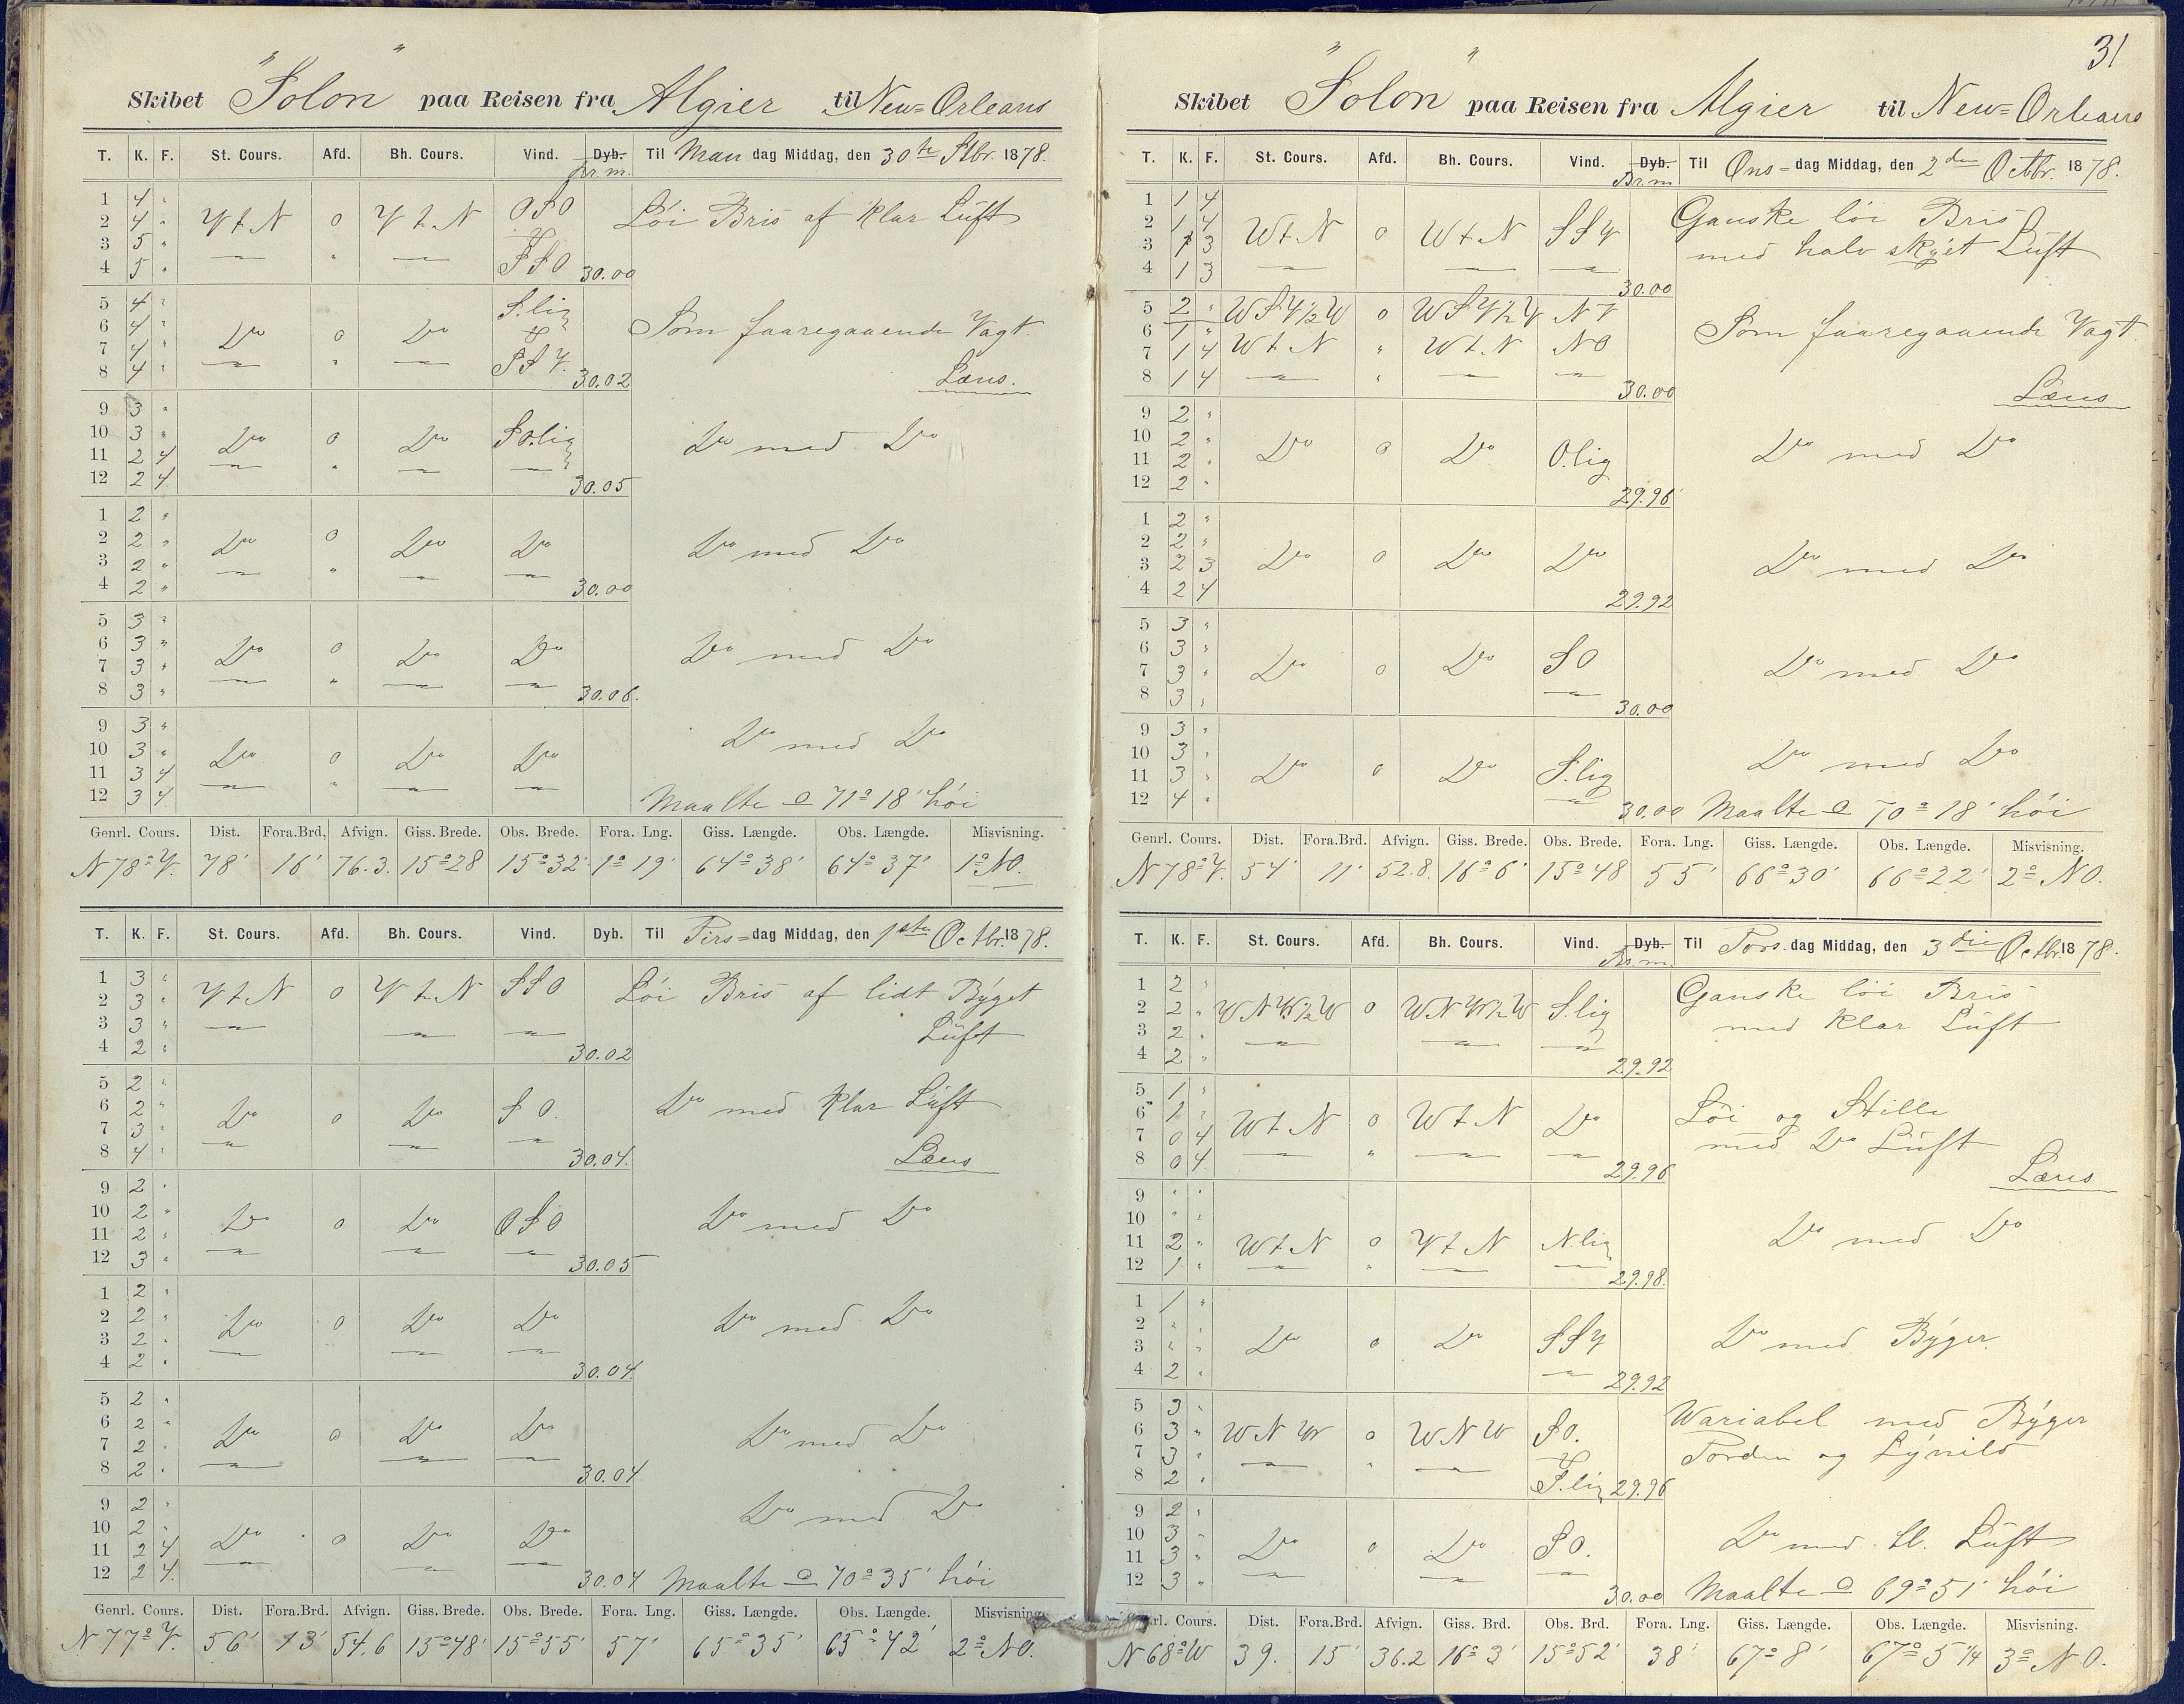 Skibet "Solon" paa Reisen fra Algier til New=Orleans
T. K. F. St. Cours. Afd. Bh. Cours. Vind. Dyb. Til Man dag Middag, den 30te Stbr. 1878.
Br.m.
1 4 "
2 4 " V t N 0 V t N OSO Løi Bris af klar Luft
3 5 "
4 5 " SSO 30.00
5 4 " S.lig
6 4 " Do 0 Do Som foaregaaende Vagt.
7 4 "
8 4 " SSV. 30.02 Læns.
9 3 "
10 3 " Do 0 Do SO.lig Do med Do
11 2 4
12 2 4 30.05
1 2 "
2 2 " Do 0 Do Do Do med Do
3 2 "
4 2 " 30.00
5 3 "
6 3 " Do 0 Do Do Do med Do
7 3 "
8 3 " 30.06.
9 3 "
10 3 " Do 0 Do Do Do med Do
11 3 4
12 3 4 Maalte ʘ 71° 18' høi
Genrl. Cours. Dist. Fora.Brd, Afvign. Giss. Brede. Obs. Brede. Fora. Lng. Giss. Længde. Obs. Længde. Misvisning.
N 78° V. 78' 16' 76.3. 15°28 15°32' 1° 19' 64° 38' 64° 37' 1° NO.
T. K. F. St. Cours. Afd. Bh. Cours. Vind. Dyb. Til Tirs=dag Middag, den 1ste Octbr. 1878.
1 3 "
2 3 " V t N 0 V t N SSO Løi Bris af lidt Bÿget
3 3 " Luft
4 2 " 30.02
5 2 "
6 2 " Do 0 Do SO. Do med klar Luft
7 3 "
8 4 " 30.04. Læns
9 2 "
10 2 " Do 0 Do OSO Do med Do
11 2 "
12 3 " 30.05
1 2 "
2 2 " Do 0 Do Do Do med Do
3 2 "
4 2 " 30.04.
5 2 "
6 2 " Do 0 Do Do Do med Do
7 2 "
8 2 " 30.04.
9 2 "
10 2 " Do 0 Do Do Do med Do
11 2 4
12 2 4. 30.04 Maalte ʘ 70° 35' høi
Genrl. Cours. Dist. Fora.Brd. Afvign. Giss. Brede. Obs. Brede. Fora. Lng. Giss. Længde. Obs. Længde. Misvisning.
N 77° V. 56' 13' 54.6 15°48' 15°55' 57' 65° 35' 65° 42' 2° NO.
31
Skibet "Solon" paa Reisen fra Algier til New=Orleans
T. K. F. St. Cours. Afd. Bh. Cours. Vind. Dyb. Til Ons=dag Middag, den 2den Octbr. 1878.
Br.m
1 1 4 Ganske løi Bris
2 1 4 W t N 0 W t N SSV med halv skyet Luft
3 1 3
4 1 3 30.00
5 2 " WSV½W 0 WSV½V NV
6 1 " Som foaregaaende Vagt.
7 1 4 W t N " W t N NO
8 1 4 30.00 Læns
9 2 "
10 2 " Do 0 Do O.lig Do med Do
11 2 "
12 2 " 29.96
1 2 "
2 2 " Do 0 Do Do Do med Do
3 2 3
4 2 4 29.92
5 3 "
6 3 " Do 0 Do SO Do med Do
7 3 "
8 3 " 30.00
9 3 "
10 3 " Do 0 Do S.lig Do med Do
11 3 "
12 4 " 30.00 Maalte ʘ 70° 18' høi
Genrl. Cours. Dist. Fora.Brd. Afvign. Giss. Brede. Obs. Brede. Fora. Lng. Giss. Længde. Obs. Længde. Misvisning.
N 78° V. 54' 11' 52.8. 16°6' 15°48 55' 66° 30' 66° 22' 2° NO.
T. K. F. St. Cours. Afd. Bh. Cours. Vind. Dyb. Til Tors. dag Middag, den 3die Octbr. 1878.
Br.m.
1 2 " Ganske løi Bris
2 2 " WNW½W 0 WNW½W S.lig med klar Luft
3 2 "
4 2 " 29.92
5 1 " Løi og Stille
6 1 " W t N 0 W t N Do med Do Luft
7 0 4
8 0 4. 29.96 Læns
9 " "
10 " " Do med Do
11 2 " W t N 0 V t N N.lig
12 1 " 29.98.
1 1 "
2 " " Do 0 Do SSV Do med Bÿger.
3 " "
4 2 " 29.92
5 3 " Wariabel med Bÿger
6 3 " WNW 0 WNW SO. Torden og Lÿnild
7 3 "
8 2 " S.lig 29.96
9 2 "
10 3 " Do 0 Do SO. Do med kl. Luft
11 3 "
12 3 " 30.00 Maalte ʘ 69° 51' høi
rl. Cours. Dist. Fora.Brd. Afvign. Giss. Brd. Obs. Brd. Fora. Lng. Giss. Længde. Obs. Længde. Misvisning.
N 68° W 39. 15' 36.2 16° 3' 15°52' 38' 67° 8' 67° 5¼ 3° NO.